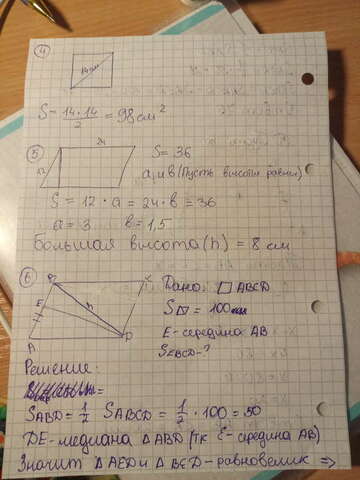 4
14 см
S = 14·14/2 = 98 см²
5
24
12
S = 36
a, и в (Пусть высоты равны)
S = 12 · a = 24 · в = 36
a = 3 в = 1,5
Большая высота (h) = 8 см
6
Дано: ABCD
S = 100
E - середина AB
S EBCD - ?
E
D
A
Решение:
S ABD = 1/2 S ABCD = 1/2 · 100 = 50
DE - медиана Δ ABD (тк E - середина AB)
Значит Δ AED и Δ BED - равновелик ⇒